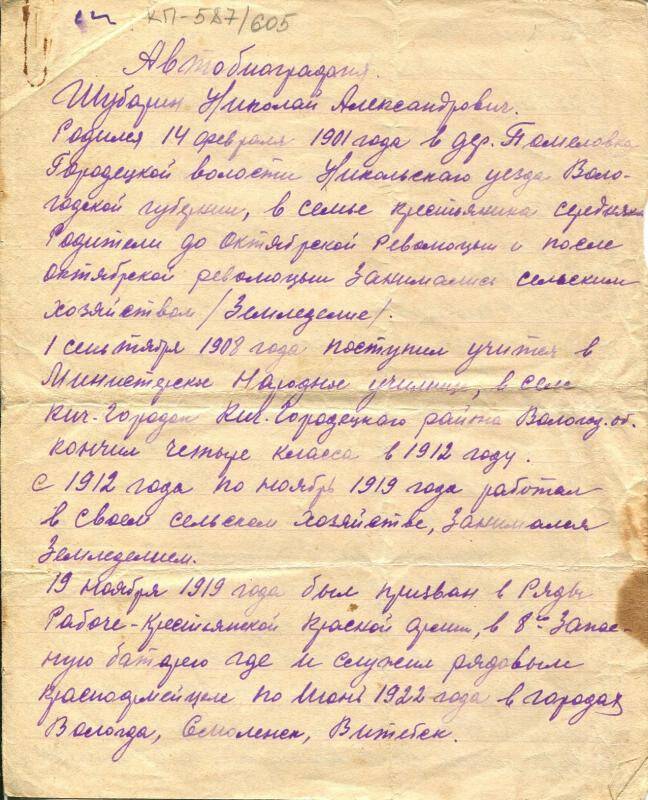 КП-587/605
Автобиография.
Шубарин Николай Александрович.
Родился 14 февраля 1901 года в дер. Помеловка
Городецкой волости Никольского уезда Воло-
годской губернии, в семье крестьянина середняка
Родители до октябрской Революции и после
октябрской революции занимались сельским
хозяйством /Земледелие/.
1 сентября 1908 года поступил учится в
Министерское Народное училище, в селе
Кич-Городок Кич. Городецкого района Вологод. об.
кончил четыре класса в 1912 году.
с 1912 года по ноябрь 1919 года работал
в своем сельском хозяйстве, занимался
Земледелием.
19 ноября 1919 года был призван в Ряды
Рабоче-Крестьянской Красной армии, в 8ую Запас-
ную батарею где и служил рядовым
красноармейцем по Июнь 1922 года в городах
Вологда, Смоленск, Витебск.